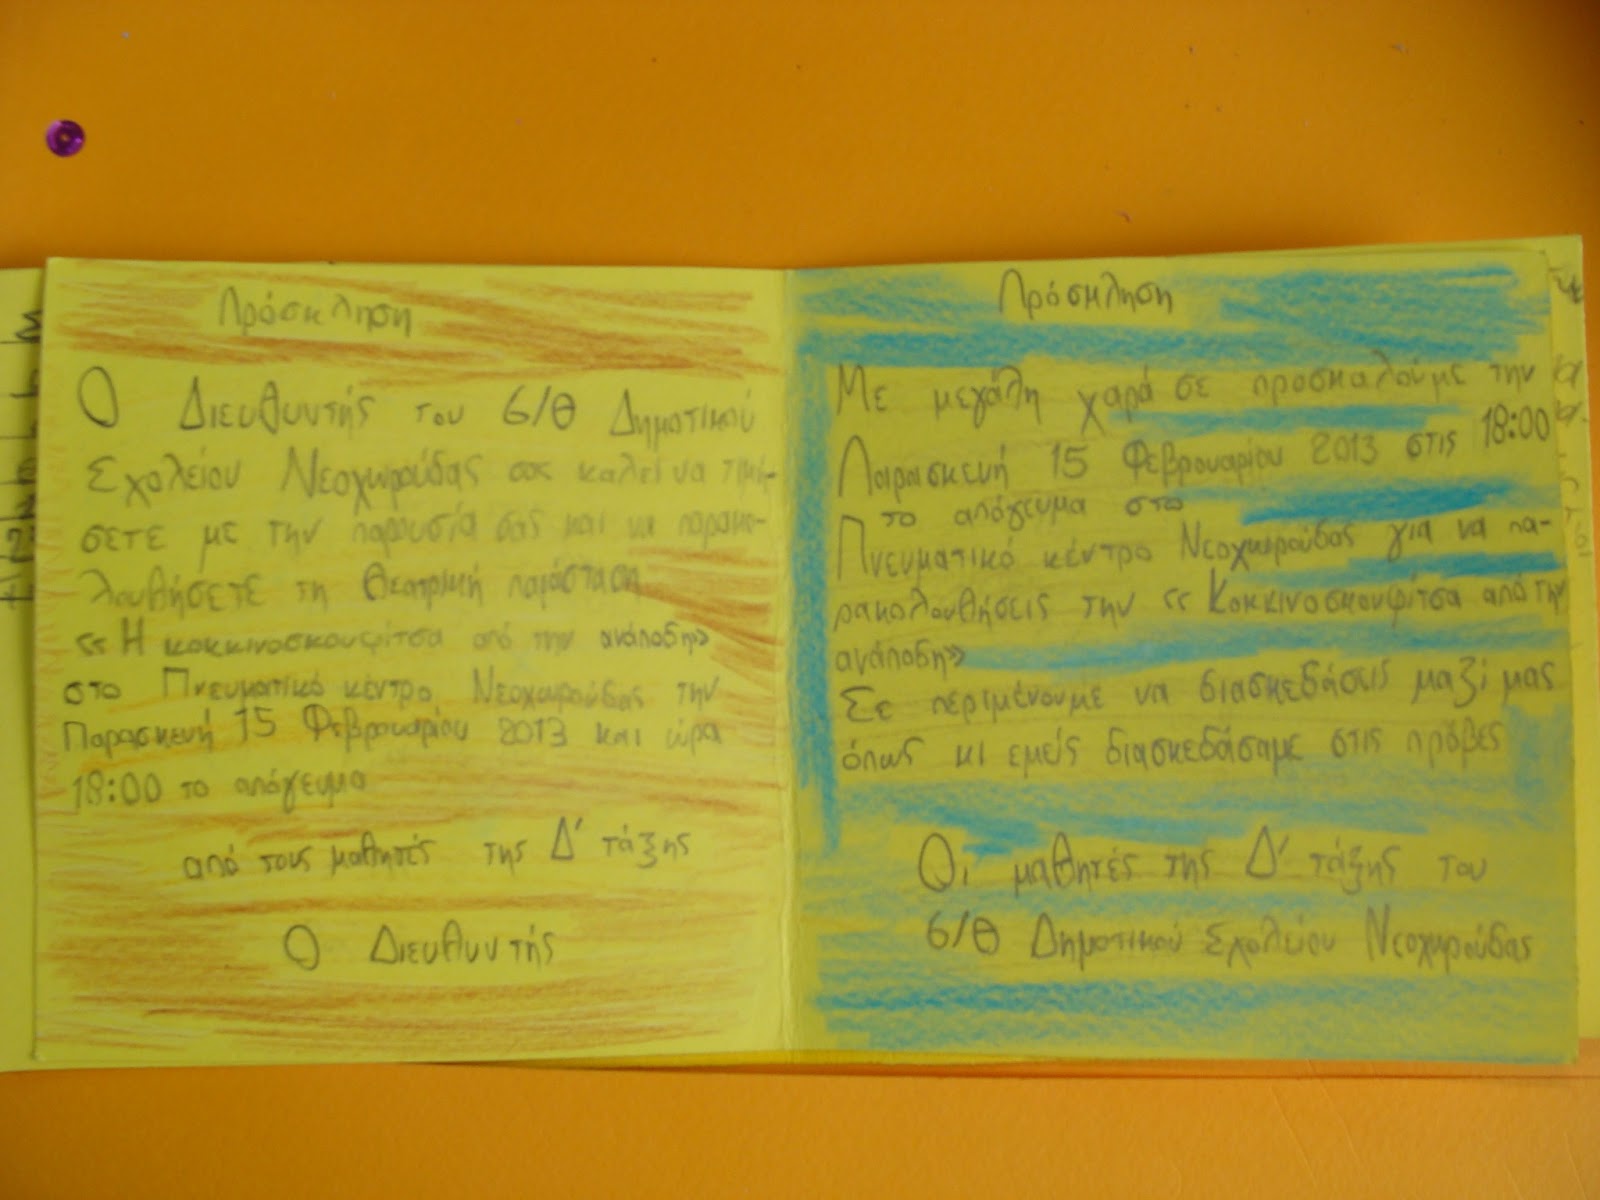 Πρόσκληση
Ο Διευθυντής του 6/Θ Δημοτικού
Σχολείου Νεοχωρούδας σας καλεί να τιμή-
σετε με την παρουσία σας και να παρακο-
λουθήσετε τη θεατρική παράσταση
«Η κοκκινοσκουφίτσα από την ανάποδη»
στο Πνευματικό κέντρο Νεοχωρούδας την
Παρασκευή 15 Φεβρουαρίου 2013 και ώρα
18:00 το απόγευμα
από τους μαθητές της Δ' τάξης
Ο Διευθυντής
Πρόσκληση
Με μεγάλη χαρά σε προσκαλούμε την
Παρασκευή 15 Φεβρουαρίου 2013 στις 18:00
το απόγευμα στο
Πνευματικό κέντρο Νεοχωρούδας για να πα-
ρακολουθήσεις την «Κοκκινοσκουφίτσα από την
ανάποδη»
Σε περιμένουμε να διασκεδάσεις μαζί μας
όπως κι εμείς διασκεδάσαμε στις πρόβες
Οι μαθητές της Δ' τάξης του
6/Θ Δημοτικού Σχολείου Νεοχωρούδας